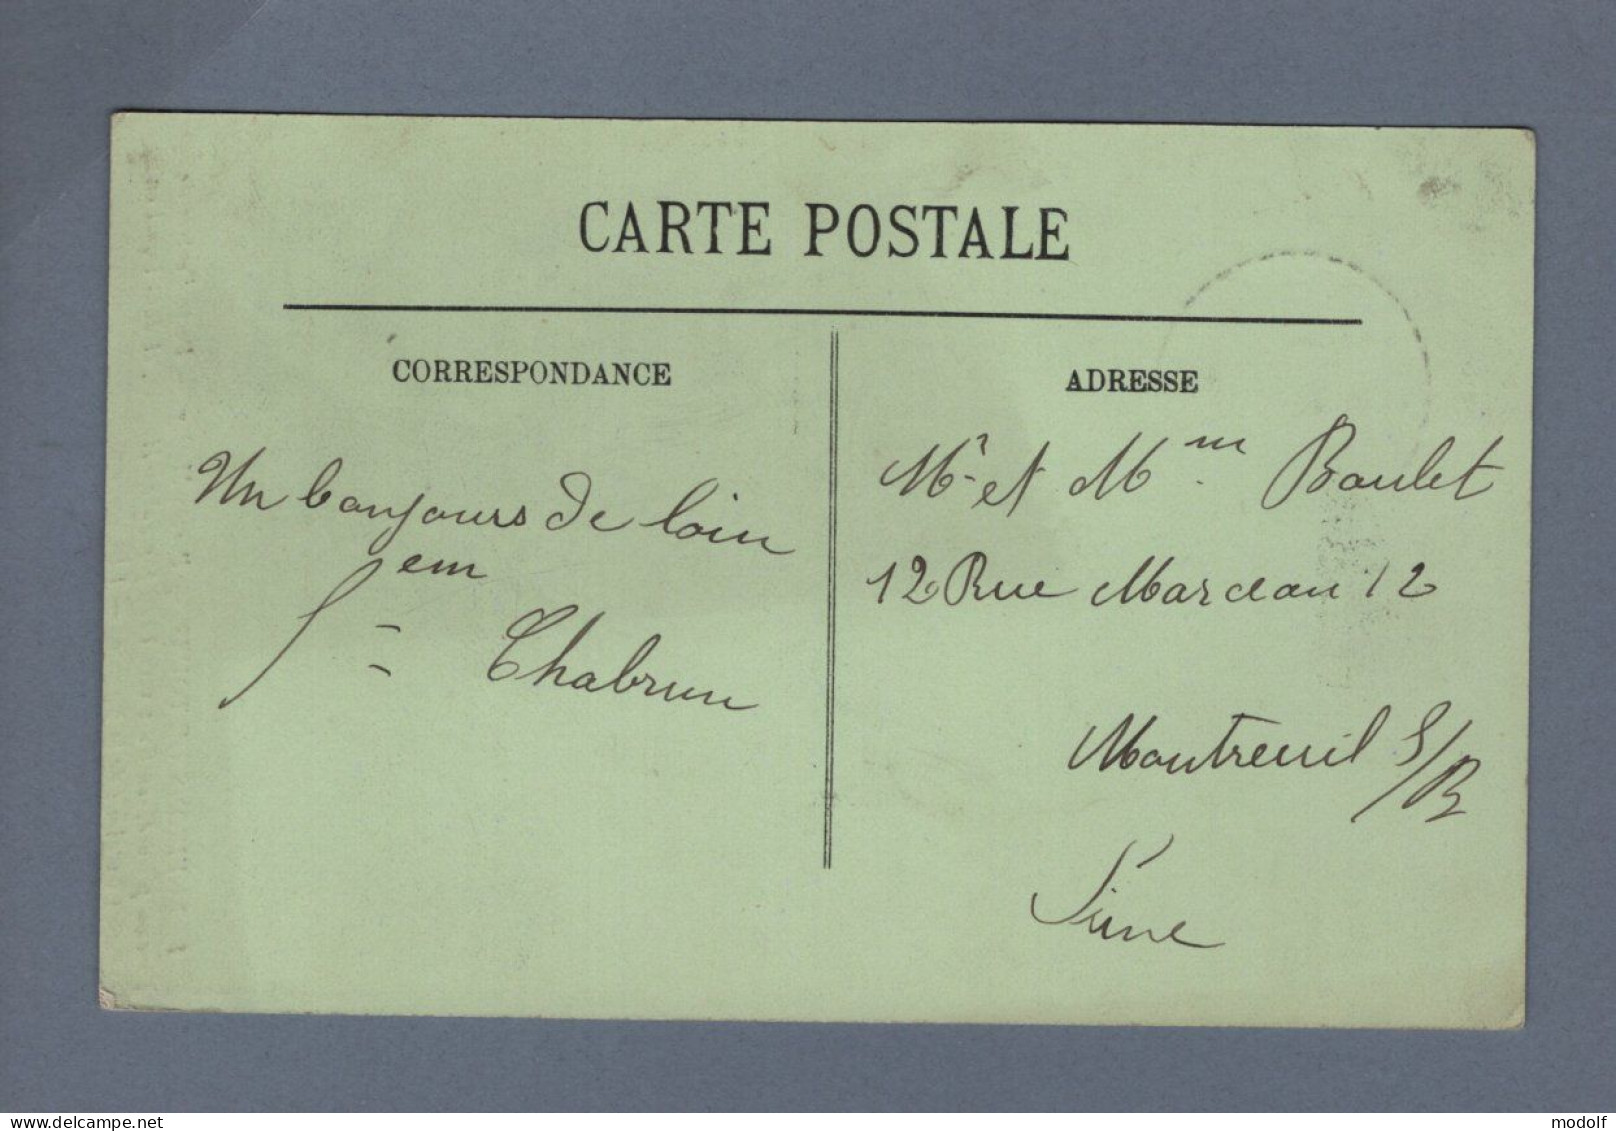 CARTE POSTALE
CORRESPONDANCE
Un bonjours de loin
Chabrun
ADRESSE
Mr et Mm Boulet
12 Rue Marceau 12
Montreuil S/B
Seine
www.delcampe.net
modolf